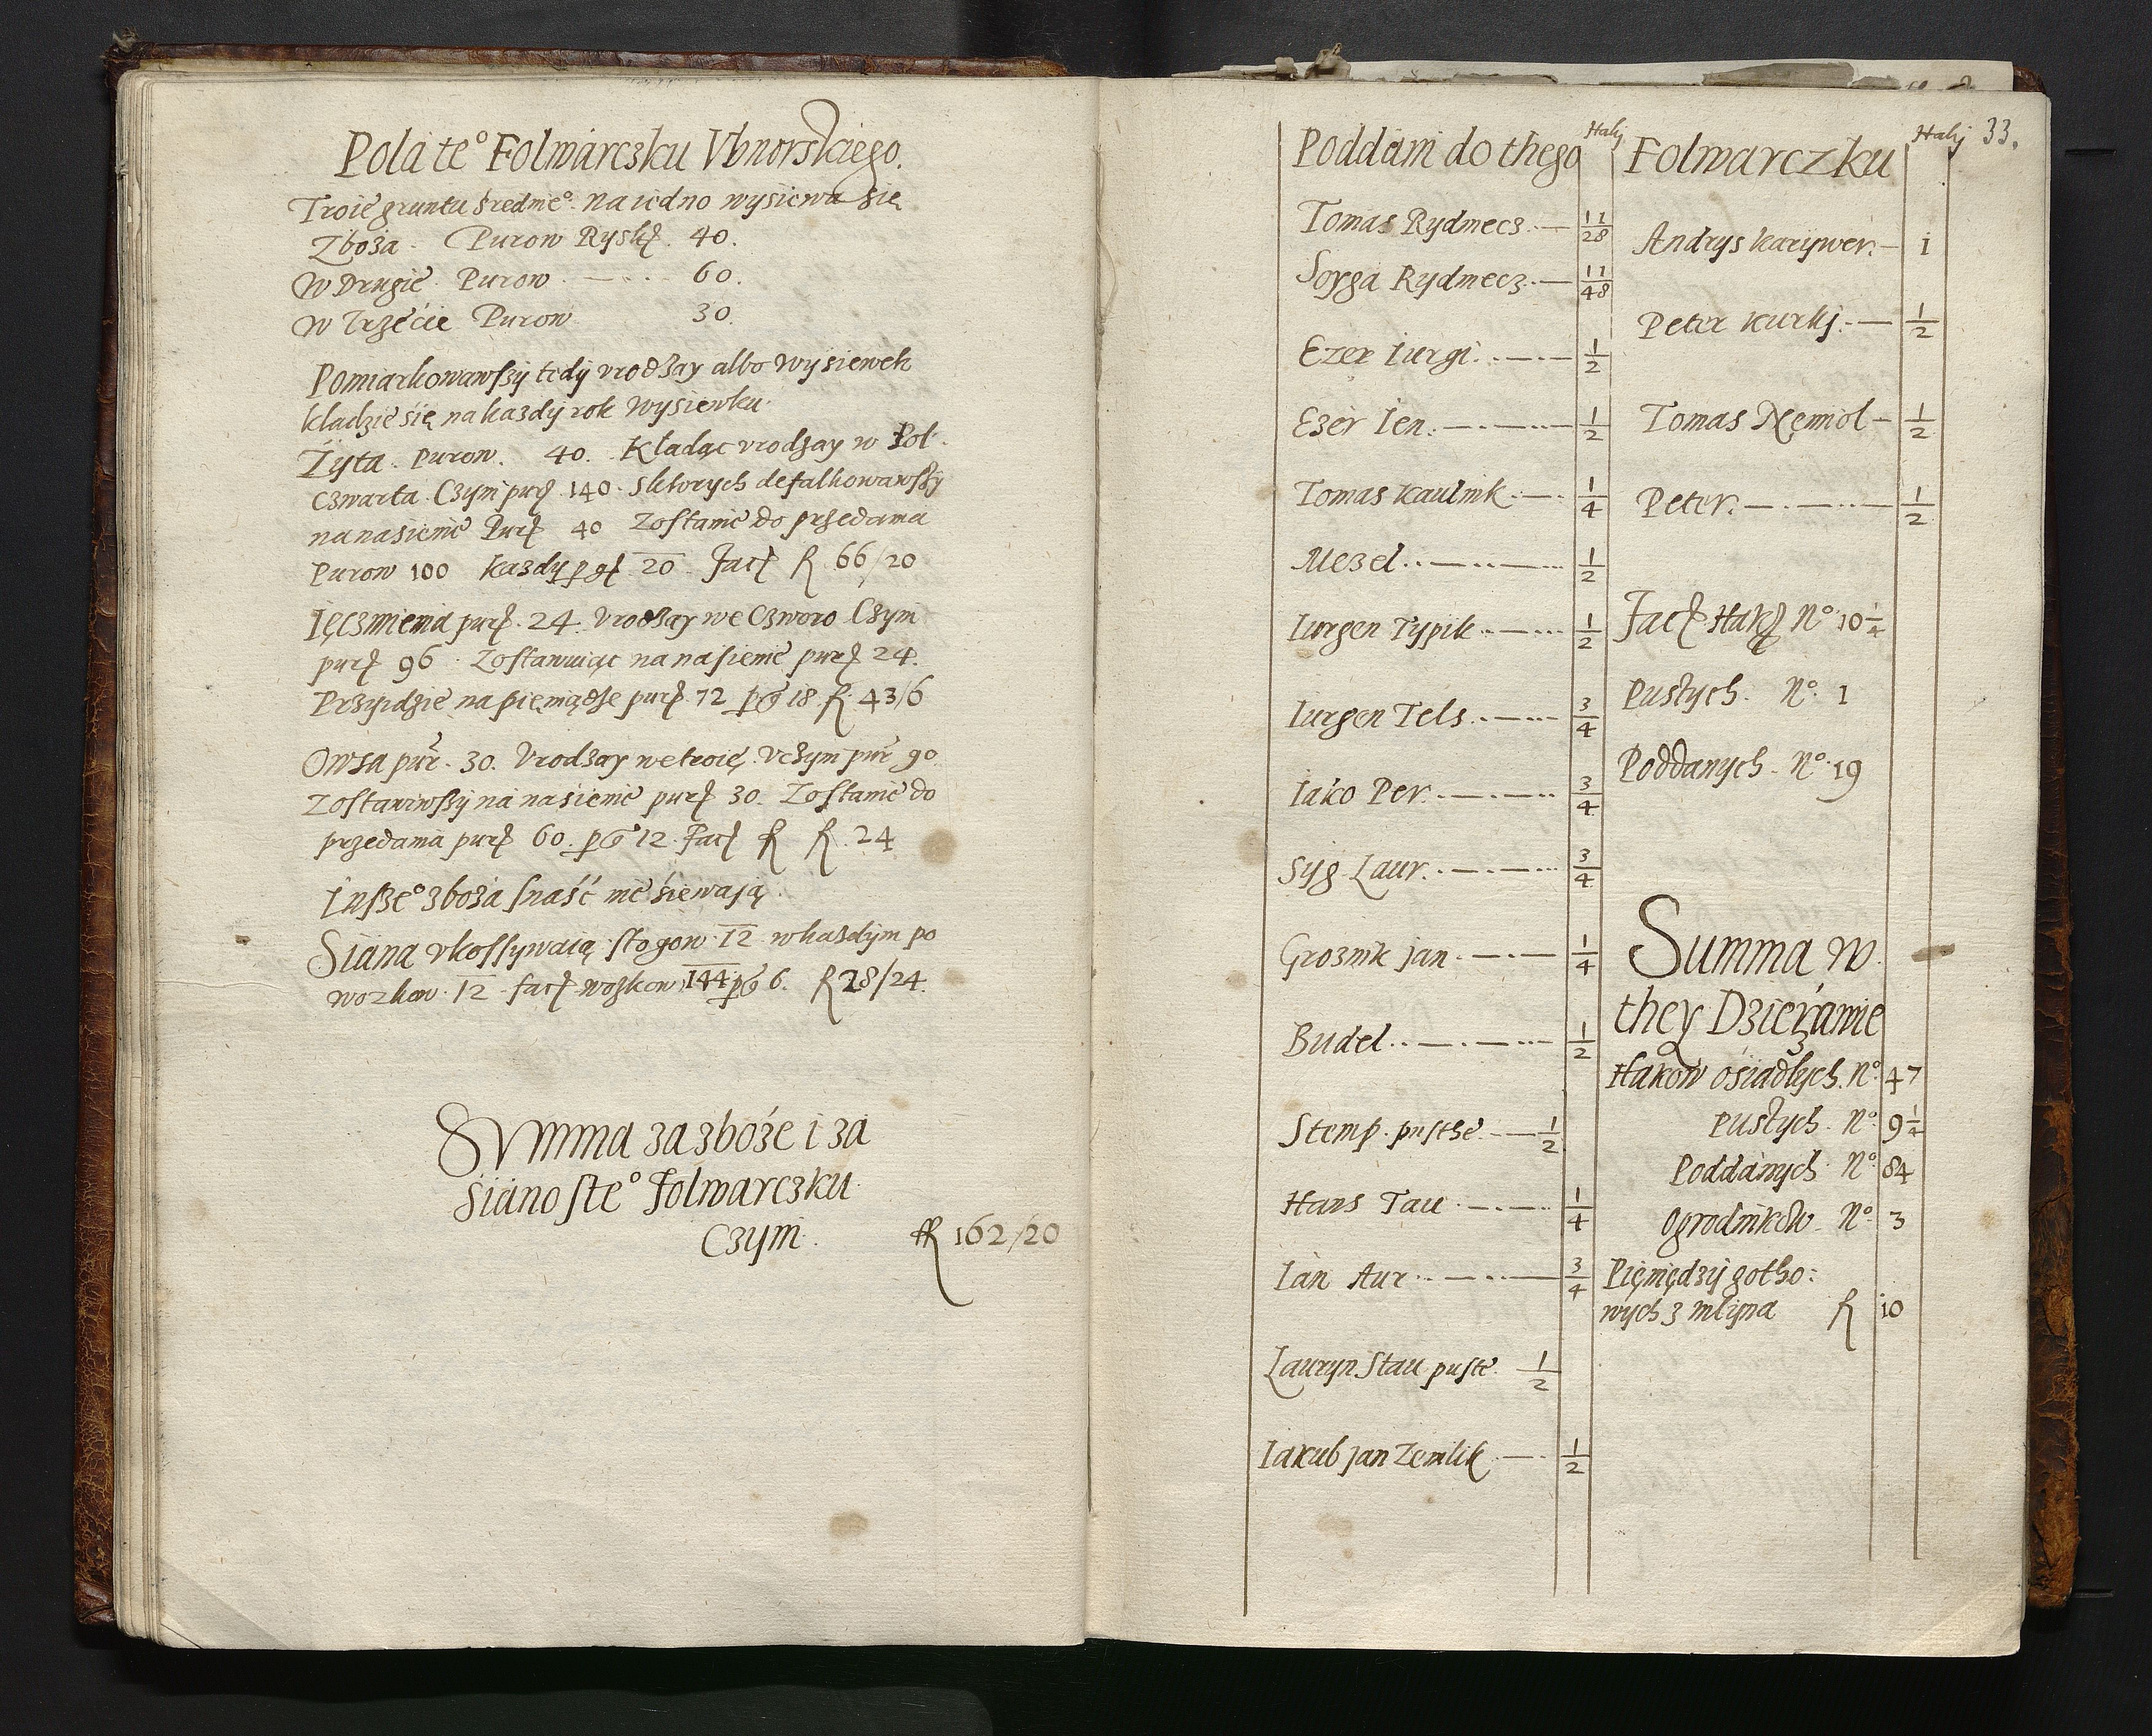 Pola te° Folwarczku Vbnorskiego.
Troie gruntu średnie° na iedno wysiewa się
Zboża. Purow Ryskę. 40.
W Drugie Purow 60.
W Trzećie Purow 30.
Pomiarkowawszy tedy vrodzay albo wysiewek
kładzie się na kazdy rok wysiewku.
Żyta. Purow. 40. Kładąc vrodzay w Poł
czwarta. Czyni purę. 140. Sktorych defalkowawszy
na nasienie Purę 40 Zostanie do przedania
Purow 100 każdy p gę 20 facę fl 66/20
Ięczmienia purę. 24. Vrodzay we Czworo Czyni
purę 96. Zostawuiąc na nasienie purę 24.
Przyidzie na pieniądze purę. 72 p g 18. fl. 43/6
Owsa pur. 30. Vrodzay we troię. Vczyni pur 90
Zostawiwszy na nasienie purę 30. Zostanie do
przedania purę 60. p g 12. Facę fl fl. 24
Insze° zboża snaść nie śiewają.
Siana vkossywaią stogow 12 w kazdym po
wozkow 12 facę wozkow 144 p g 6. fl 28/24.
Summa za zboże i za
siano ste° Folwarczku
Czyni. fl 162/20
33.
Poddani do thego Hakj Folwarczku Hakj
Tomas Rydmecz 11/28
Soyga Rydmecz 11/48
Ezer Iurgi 1/2
Ezer Ien 1/2
Tomas Kaulnik 1/4
Mezel 1/2
Iurgen Typik 1/2
Iurgen Tels 3/4
Iako Per 3/4
Syg Laur 3/4
Groznik jan 1/4
Budel 1/2
Stemp. pusthe 1/2
Hans Tau 1/4
Ian Aur 3/4
Lauryn Stau puste 1/2
Iakub jan Zemlik 1/2
Andrys Karywer 1
Peter Kurkj 1/2
Tomas Nemol 1/2
Peter 1/2
Facę Hakę N° 10 1/4
Pustych. N° 1
Poddanych. N° 19
Summa w
they Dzierżawie
Hakow ośiadłych. N° 47
Pustych. N° 9 1/4
Poddanych N° 84
Ogrodnikow N° 3
Pięniędzy gotho:
wych z młyna fl 10